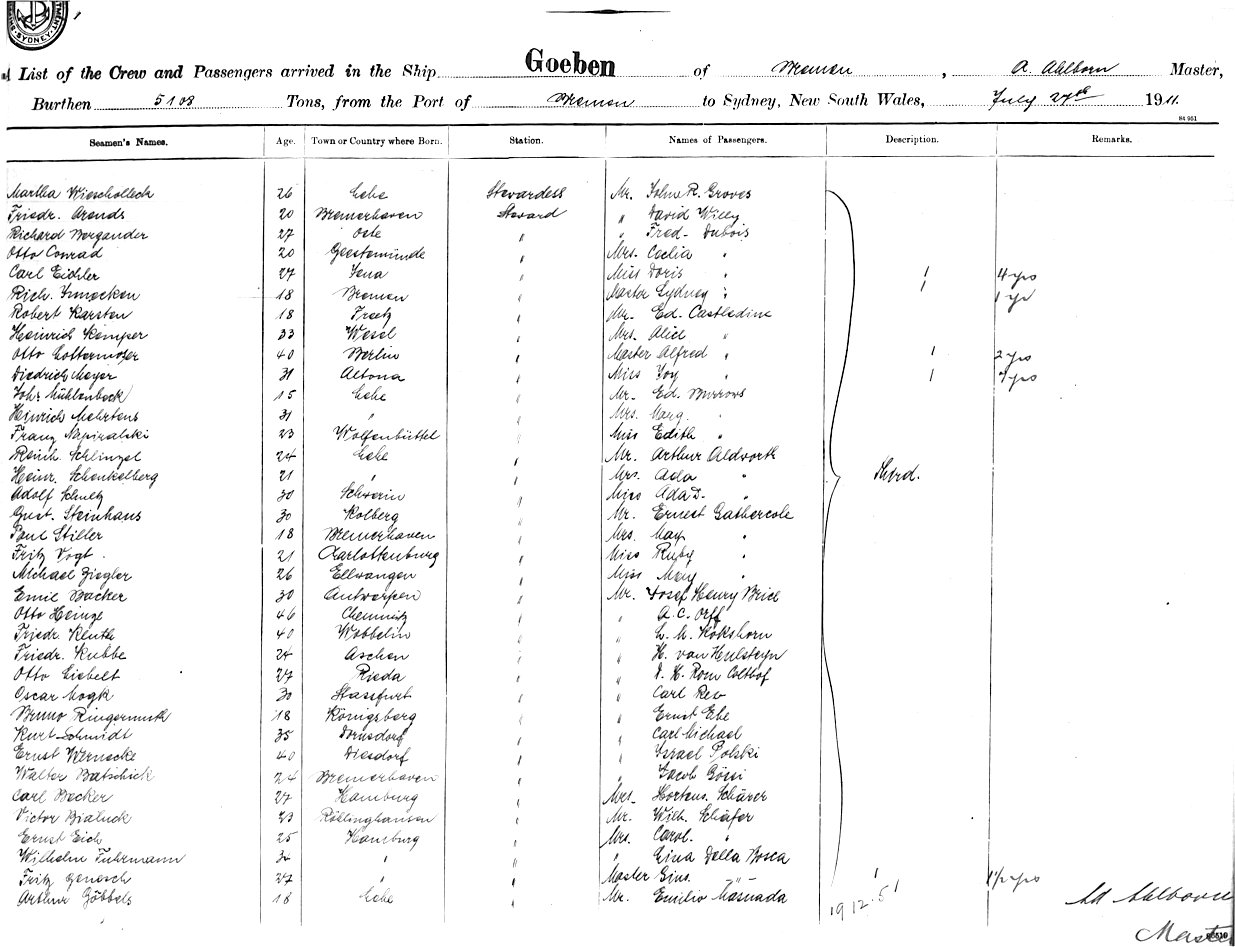 SYDNEY
List of the Crew and Passengers arrived in the Ship Goeben of Bremen, A. Ahlborn Master,
Burthen 5108 Tons, from the Port of Bremen to Sydney, New South Wales, July 27th 1911.
84 951
Seamen's Names. Age. Town or Country where Born. Station. Names of Passengers. Description. Remarks.
Martha Wieschollek 26 Lehe Stewardess Mr. John R. Groves
Friedr. Arends 20 Bremerhaven Steward " David Willy
Richard Bergander 27 Oste " " Fred- Dubois
Otto Conrad 20 Geestemünde " Mrs. Cecilia "
Carl Eichler 27 Jena " Miss Doris " 1 4 yrs
Rich. 18 Bremen " Master Sydney " 1 1 yr
Robert Karsten 18 " Mr. Ed. Castledine
Heinrich Kemper 33 Wesel " Mrs. Alice "
Otto Lottermoser 40 Berlin " Master Alfred " 1 2 yrs
Diedrich Meyer 31 Altona " Miss Joy " 1 yrs
Johs Mühlenbeck 15 Lehe " Mr. Ed. Burrows
Heinrich Mehrtens 31 " " Mrs. Marg. "
Franz Napiralski 23 Wolfenbüttel " Miss Edith "
Reinh. Schlinzel 24 Lehe " Mr. Arthur Aldworth
Heinr. Schenkelberg 21 " " Mrs. Ada " Third.
Adolf Schultz 30 Schwerin " Miss Ada D. "
Gust. Steinhaus 30 Kolberg " Mr. Ernest Gathercole
Paul Stiller 18 Bremerhaven " Mrs. May "
Fritz Vogt 21 Charlottenburg " Miss Ruby "
Michael Ziegler 26 Ellwangen " Miss Mary "
Emil Backer 30 Antwerpen " Mr. Josef Henry Brice
Otto Heinze 46 Chemnitz " " A. C. Orff
Friedr. Kenth 40 Wobbelin " " L. M. Kokshorn
Friedr. Kubbe 24 Aschen " " H. van Hulsteyn
Otto Liebelt 27 Rieda " " H. Rom Colthof
Oscar Mogk 30 Stassfurt " " Carl Rev
Bruno Ringermuth 18 Königsberg " " Ernst Ehe
Kurt Schmidt 35 " " Carl Michael
Ernst Wernecke 40 Diesdorf " " Israel Polski
Walter Batschick 24 Bremerhaven " " Jacob Gössi
Carl Becker 27 Hamburg " Mrs. Hortens. Schärer
Victor Bialuck 23 Röllinghausen " Mr. Wilh. Schäfer
Ernst Eich 25 Hamburg " Mrs. Carol. "
Wilhelm Fuhrmann 34 " " " Gina Della Bosca
Fritz Genosch 27 " " Master Gius. " " 1 1/2 yrs
Arthur Göbbels 18 Lehe " Mr. Emilio Masnada 1912.51 Ahlborn
Master